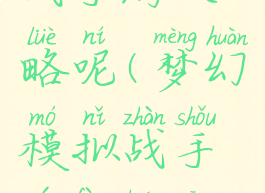 lüè ní mèng huàn
略呢(梦幻
mó nǐ zhàn shǒu
模拟战手